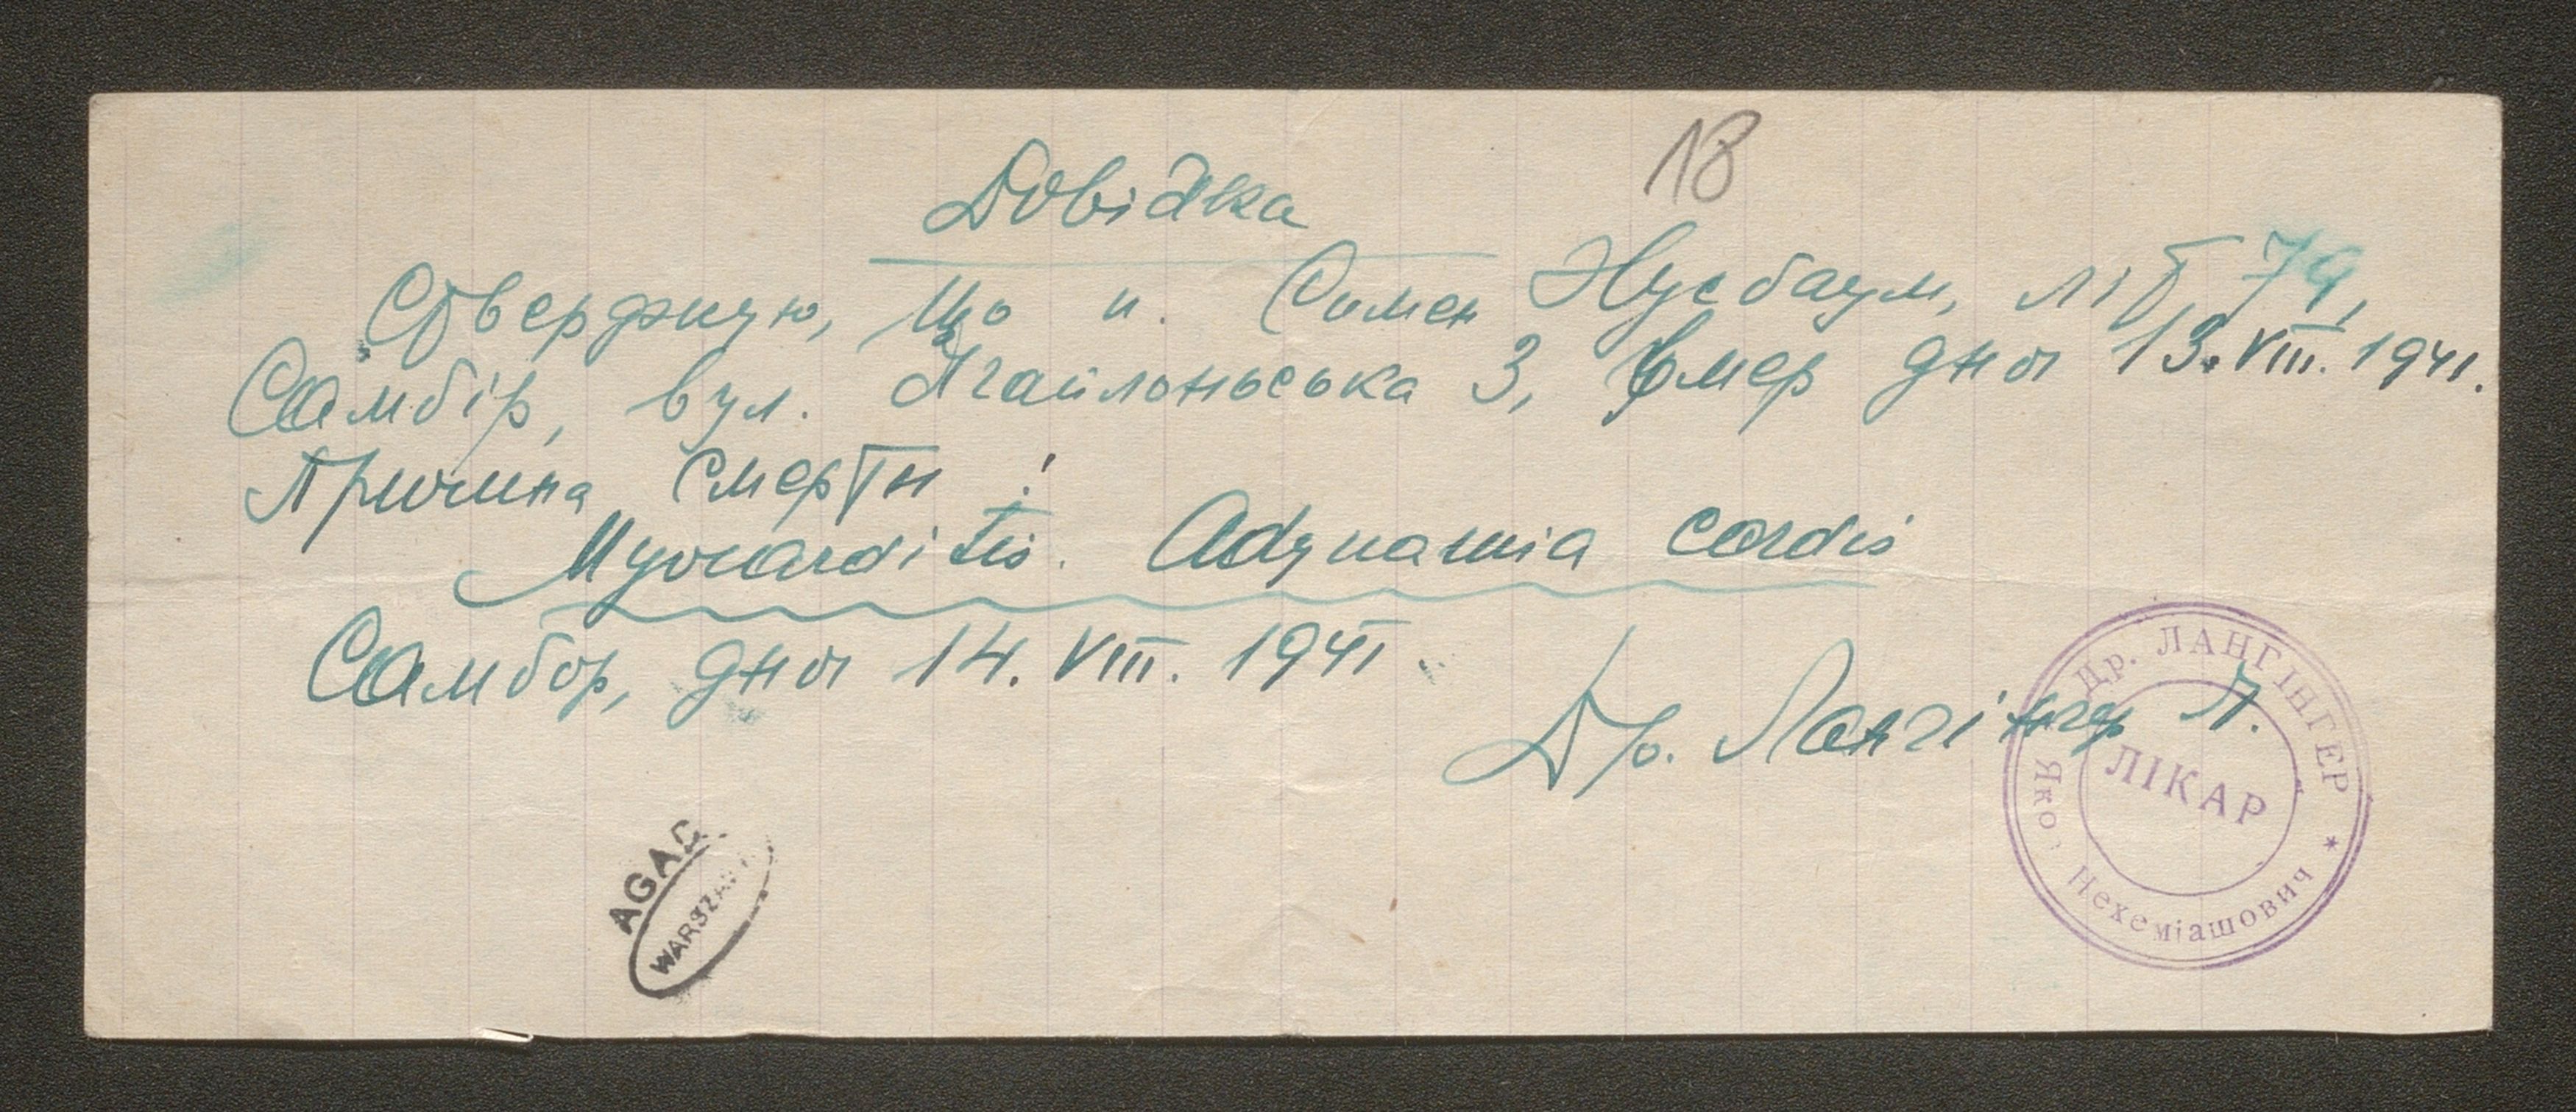 18
Довідка
Стверджую, що п. Симен Нусбаум, літ 74,
Самбір, вул. Ягайлоньська 3, вмер дня 13. VIII. 1941.
Причина смерти:
Myocarditis. Adynamia cordis
Самбор, дня 14. VIII. 1941.
Др. Лангінгер Я.
Др. ЛАНГІНГЕР
Нехеміашович
ЛІКАР
AGAD
WARSZAWA